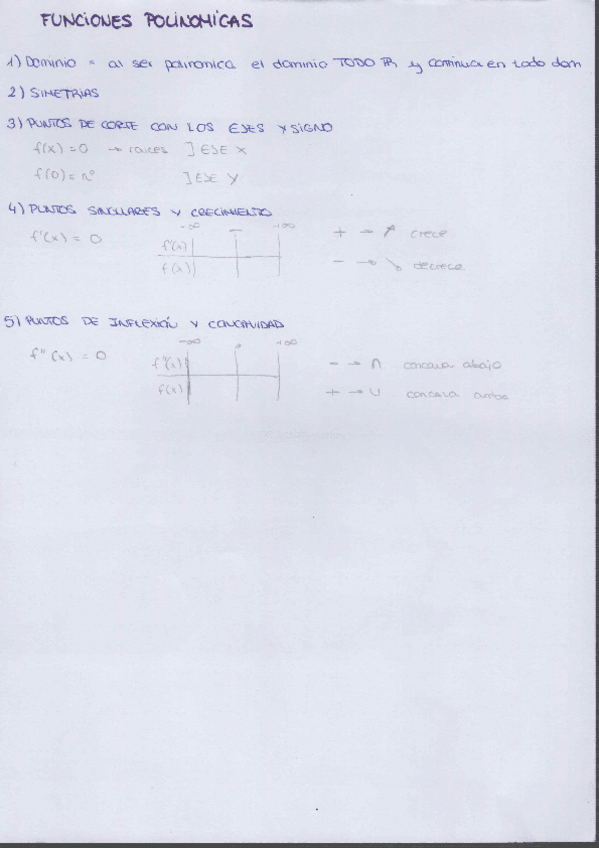 FUNCIONES POLINOMICAS
1) Dominio = al ser polinomica el dominio TODO ℝ y continua en todo dom
2) SIMETRIAS
3) PUNTOS DE CORTE CON LOS EJES Y SIGNO
f(x) = 0 → raices ] EJE X
f(0) = nº ] EJE Y
4) PUNTOS SINGULARES Y CRECIMIENTO
-∞ +∞
f'(x) = 0 f'(x) + → ↗ crece
f(x) - → ↘ decrece
5) PUNTOS DE INFLEXIÓN Y CONCAVIDAD
-∞ +∞
f''(x) = 0 f''(x) - → ∩ concava abajo
f(x) + → ∪ concava arriba